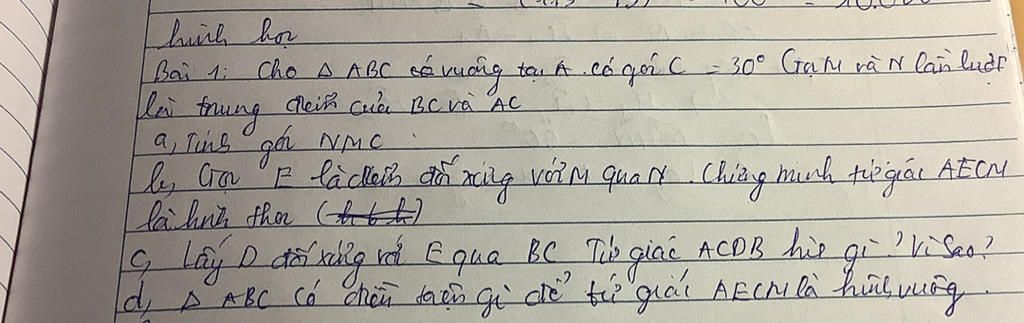 hình học
Bài 1: Cho Δ ABC vuông tại A. có góc C = 30° Gọi M và N lần lượt
là trung điểm của BC và AC
a, Tính góc NMC
b, Gọi E là điểm đối xứng với M qua N. Chứng minh tứ giác AECM
là hình thoi
c, Lấy D đối xứng với E qua BC Tứ giác ACDB hình gì? Vì Sao?
d, Δ ABC có điều kiện gì để tứ giác AECM là hình vuông.